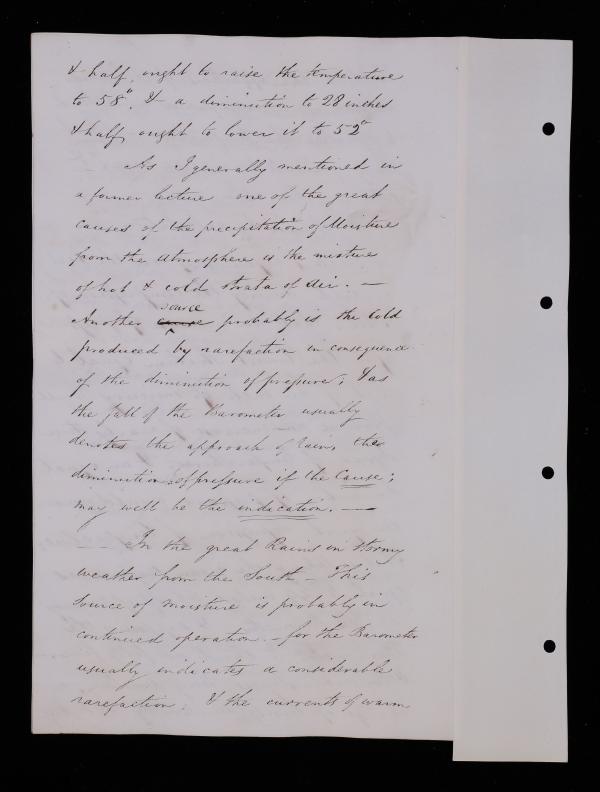 & half, ought to raise the temperature
to 58°, & a diminution to 28 inches
& half, ought to lower it to 52°
As I generally mentioned in
a former lecture one of the great
causes of the precipitation of Moisture
from the Atmosphere is the mixture
of hot & cold strata of air. —
source
Another cause probably is the cold
produced by rarefaction in consequence
of the diminution of pressure; & as
the fall of the Barometer usually
denotes the approach of rain, the
diminution of pressure if the Cause;
may well be the indication. —
— In the great Rains in stormy
weather from the South – This
Source of moisture is probably in
continued operation. – for the Barometer
usually indicates a considerable
rarefaction. & the currents of warm